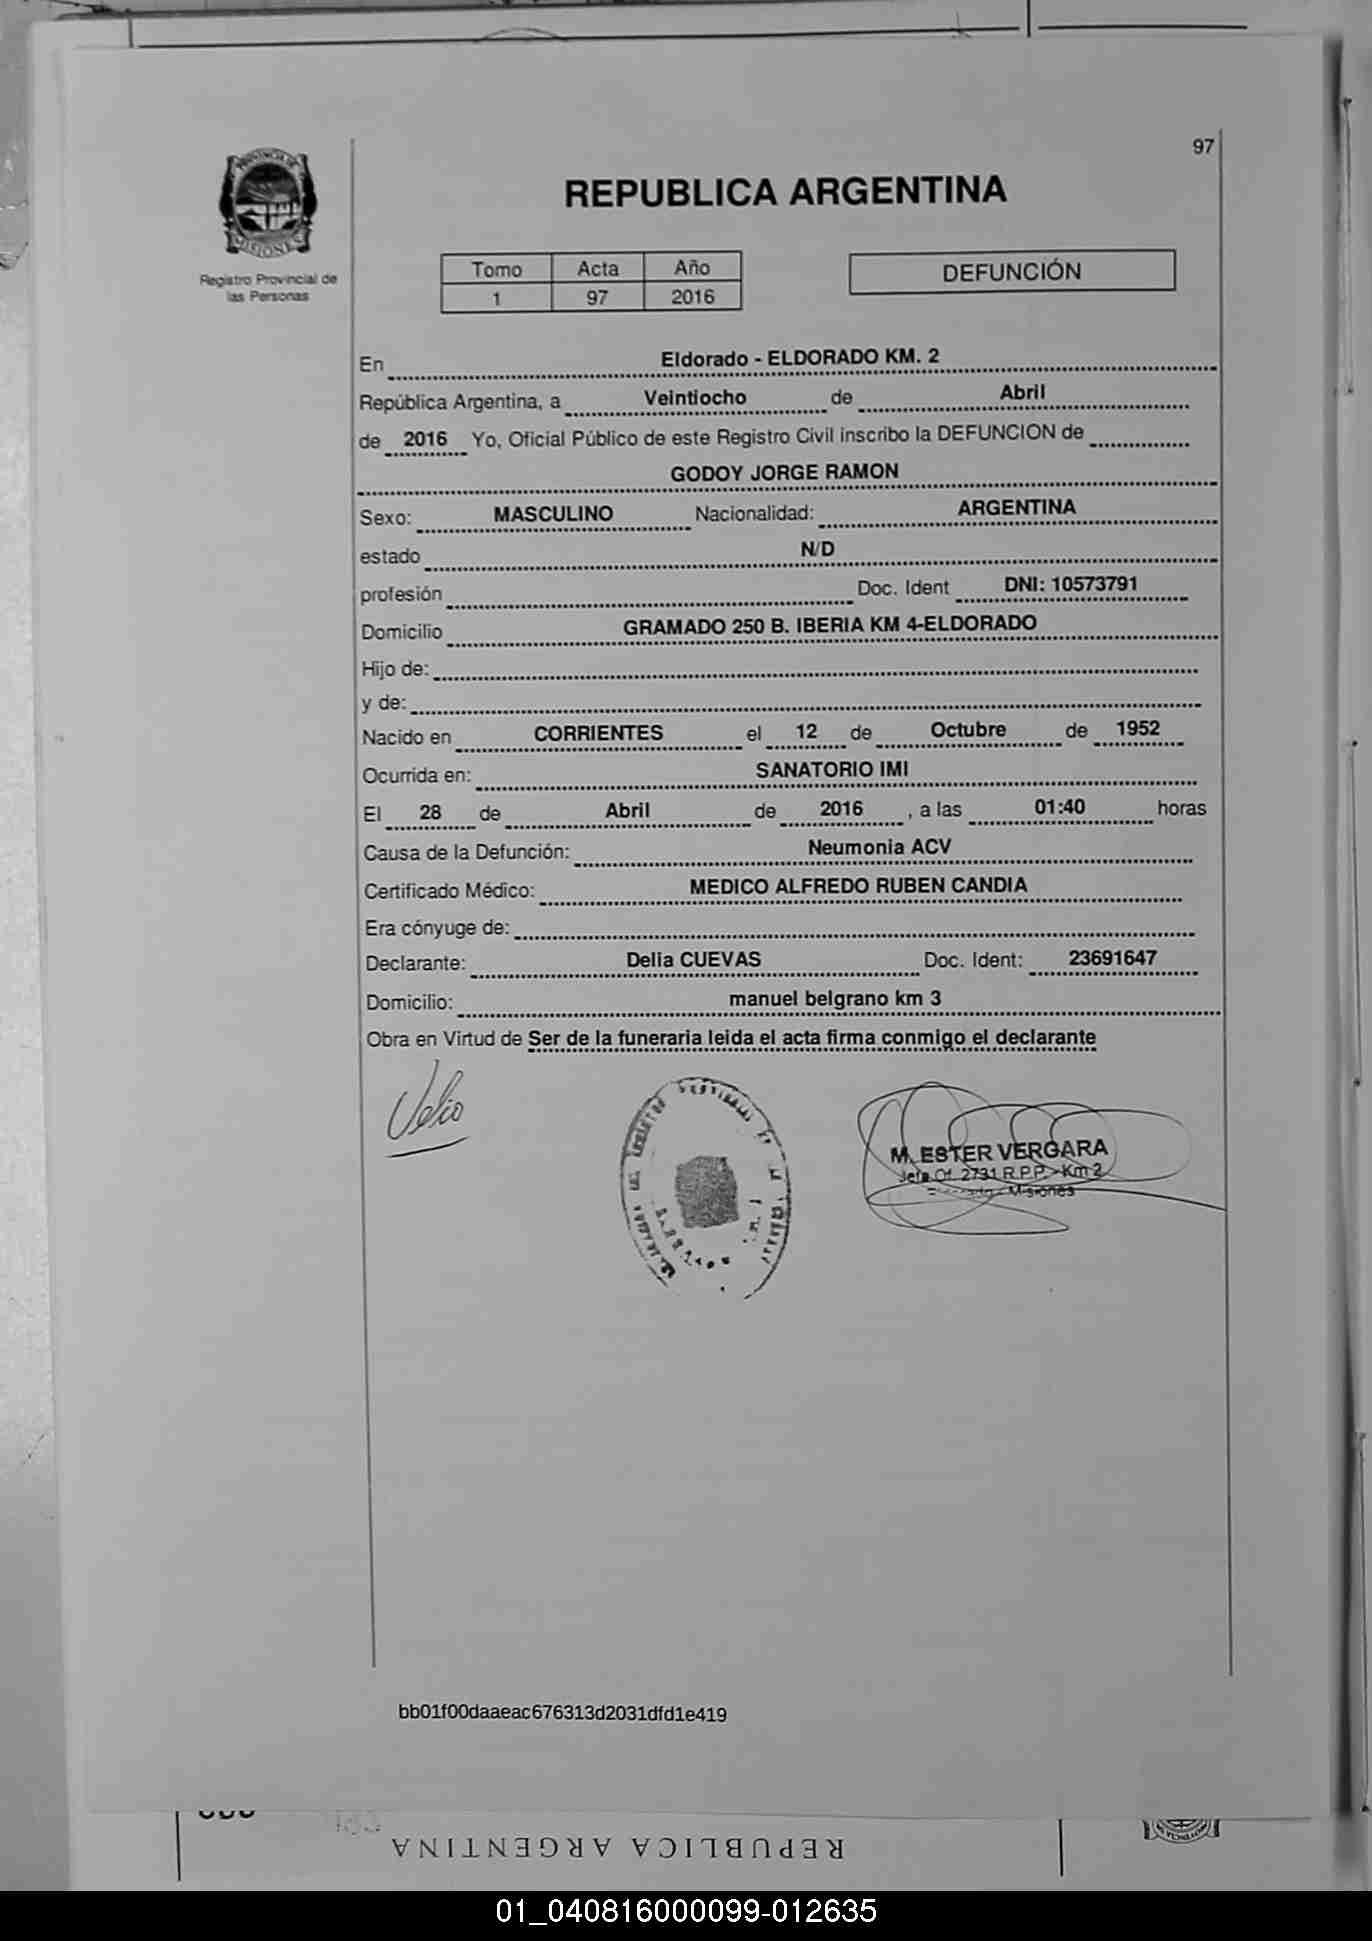 97
PROVINCIA DE
MISIONES
Registro Provincial de
las Personas
REPUBLICA ARGENTINA
Tomo Acta Año
1 97 2016
DEFUNCIÓN
En Eldorado - ELDORADO KM. 2
República Argentina, a Veintiocho de Abril
de 2016 Yo, Oficial Público de este Registro Civil inscribo la DEFUNCION de
GODOY JORGE RAMON
Sexo: MASCULINO Nacionalidad: ARGENTINA
estado N/D
profesión Doc. Ident DNI: 10573791
Domicilio GRAMADO 250 B. IBERIA KM 4-ELDORADO
Hijo de:
y de:
Nacido en CORRIENTES el 12 de Octubre de 1952
Ocurrida en: SANATORIO IMI
El 28 de Abril de 2016 , a las 01:40 horas
Causa de la Defunción: Neumonia ACV
Certificado Médico: MEDICO ALFREDO RUBEN CANDIA
Era cónyuge de:
Declarante: Delia CUEVAS Doc. Ident: 23691647
Domicilio: manuel belgrano km 3
Obra en Virtud de Ser de la funeraria leida el acta firma conmigo el declarante
M. ESTER VERGARA
Jefa Of. 2731 R.P.P. - Km 2
Misiones
bb01f00daaeac676313d2031dfd1e419
REPUBLICA ARGENTINA
01_040816000099-012635